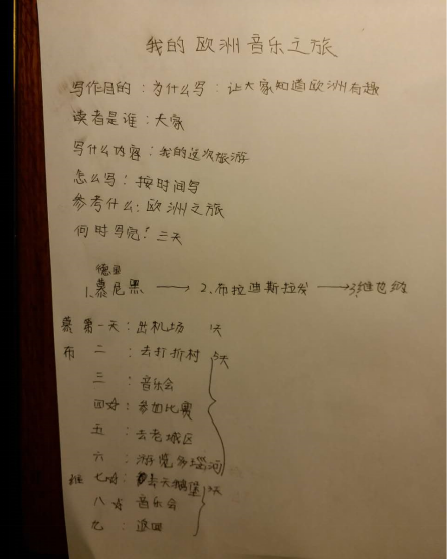 我的欧洲音乐之旅
写作目的:为什么写:让大家知道欧洲有趣
读者是谁:大家
写什么内容:我的这次旅游
怎么写:按时间写
参考什么:欧洲之旅
何时写完?三天
德国
1.慕尼黑 → 2.布拉迪斯拉发 → 3.维也纳
慕 第一天:出机场 1天
布 二:去打折村 5天
三:音乐会
四☆:参加比赛
五:去老城区
六:游览多瑙河
维 七☆:去天鹅堡 3天
八☆音乐会
九:返回